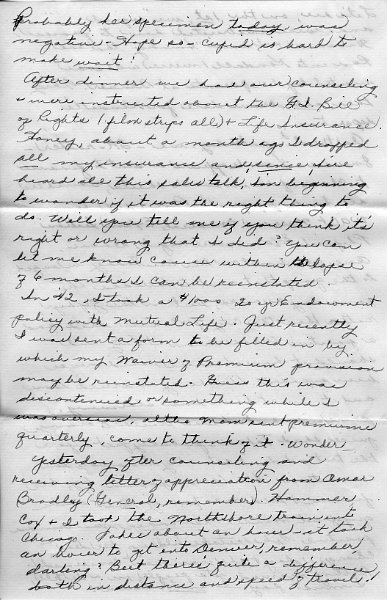 Probably her specimen today was
negative - Hope so - cupid is hard to
make wait!
After dinner we had our counseling
& were instructed about the G.I. Bill
of Rights (film strips all) & Life Insurance.
Funny, about a month ago I dropped
all my insurance and since I've
heard all this sales talk, I'm beginning
to wonder if it was the right thing to
do. Will you tell me if you think it's
right or wrong that I did? You can
let me know cause within the lapse
of 6 months I can be reinstated.
In '42, I took a $1000 20 yr Endowment
policy with Mutual Life. Just recently
I was sent a form to be filled in by
which my Waiver of Premium provision
may be reinstated. Guess this was
discontinued or something while I
was overseas, altho Mom sent premiums
quarterly, come to think of it. Wonder
Yesterday, after counseling and
receiving letter of appreciation from Omar
Bradley (General, remember) Hammer
Cox & I took the Northshore train into
Chicago. Takes about an hour - it took
an hour to get into Denver, remember,
darling? But there's quite a difference,
both in distance and speed of travel!